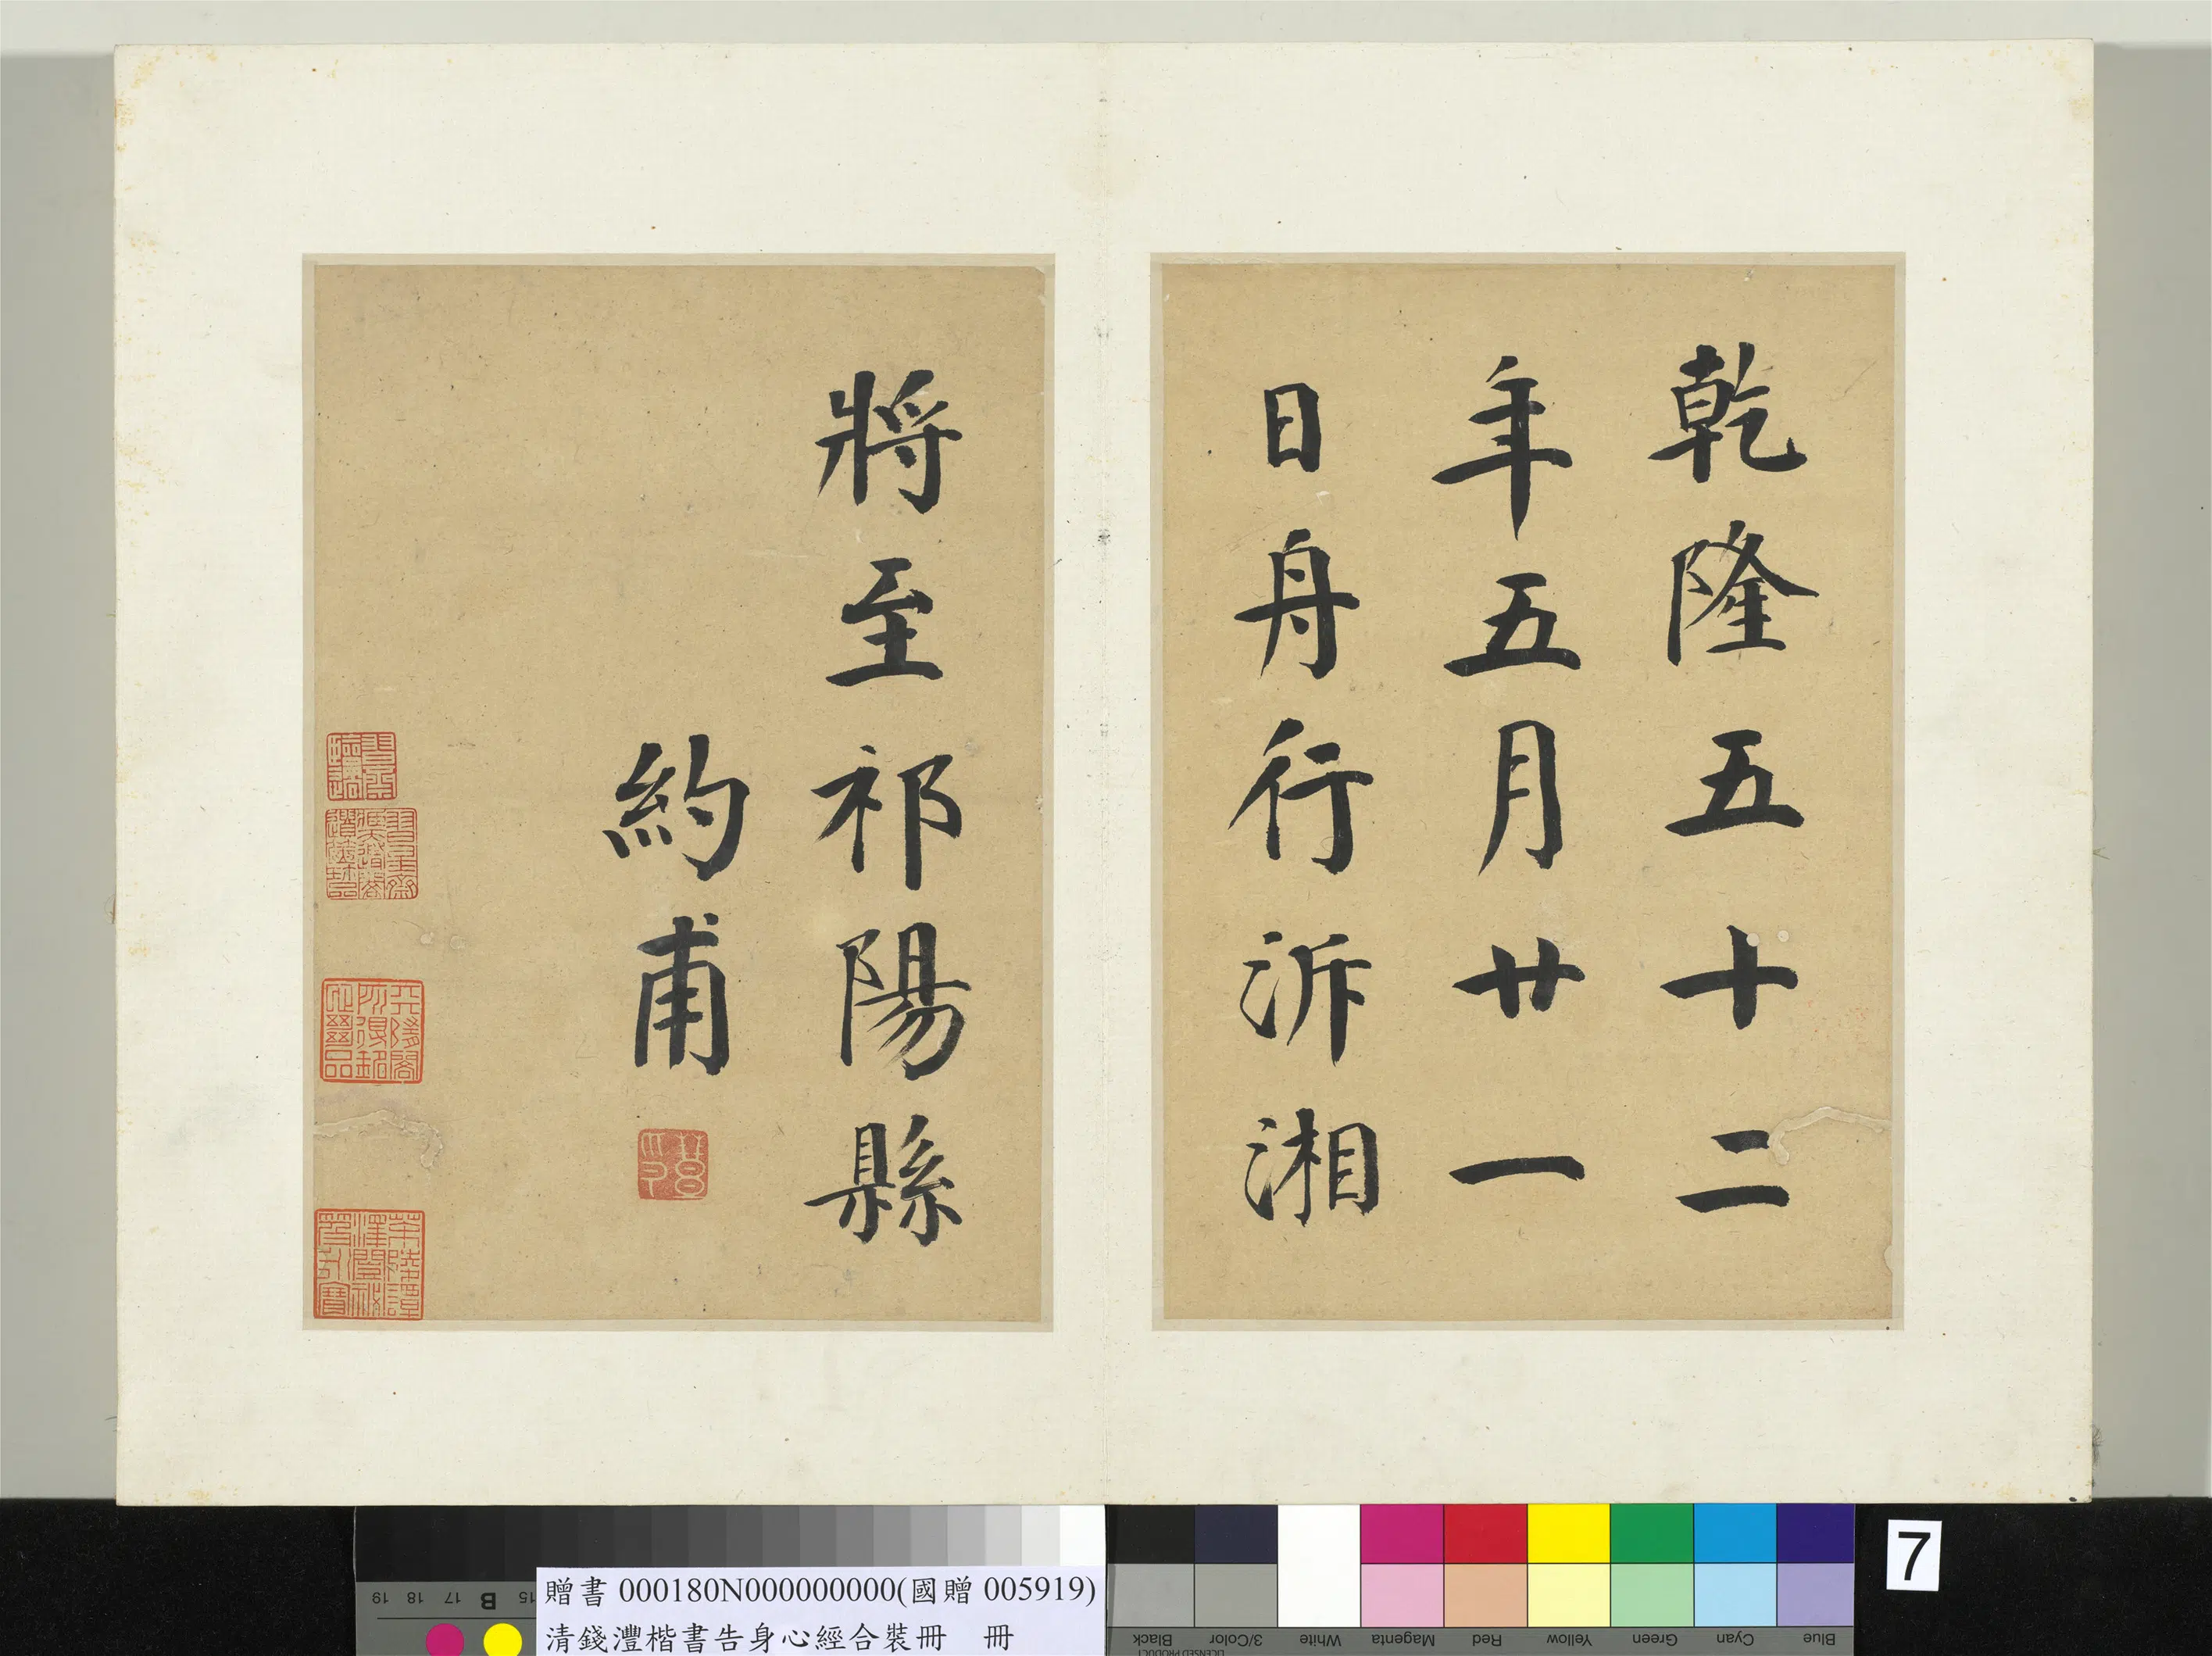 乾隆五十二
年五月廿一
日舟行泝湘
將至祁陽縣
約甫
贈書 000180N000000000(國贈 005919)
清錢灃楷書告身心經合裝冊 冊
7
19 18 17 B 15
Black 3/Color White Magenta Red Yellow Green Cyan Blue
LICENSED PRODUCT